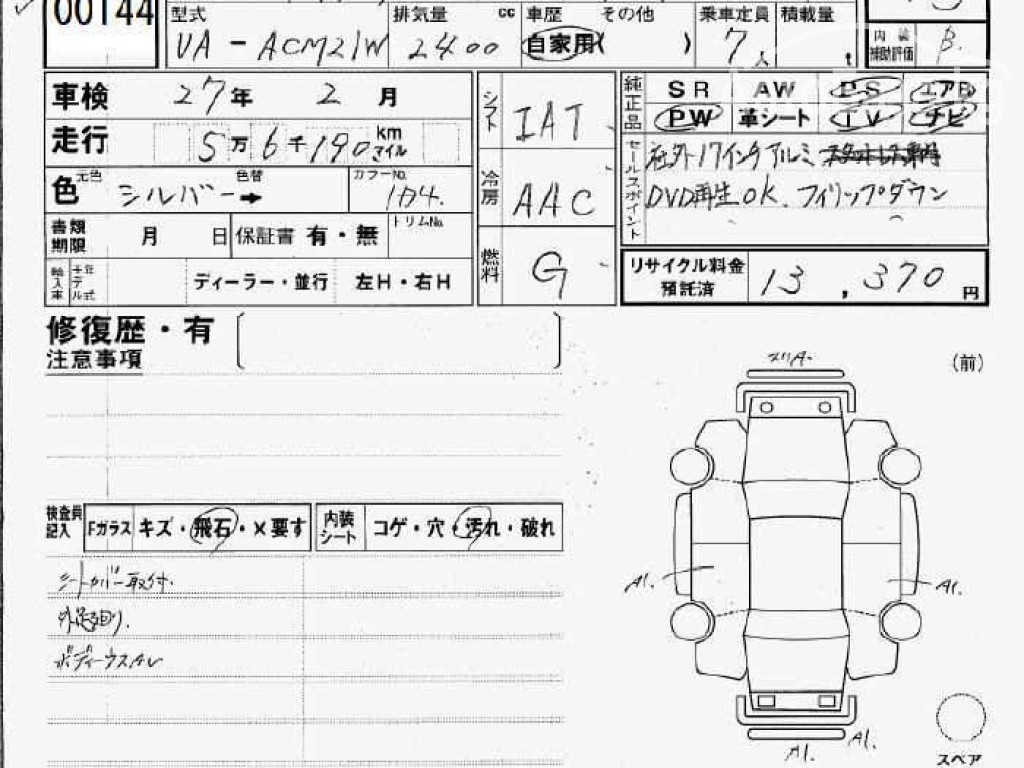 00144
型式 排気量 cc 車歴 その他 乗車定員 積載量
UA - ACM21W 2400 自家用( ) 7人 t
内装 補助評価 B
車検 27年 2月
走行 5万6千190 km マイル
色 元色 シルバー 色替 → カラーNo. 1D4
書類期限 月 日 保証書 有・無 トリムNo.
輸入車 モデル年式 ディーラー・並行 左H・右H
シフト IAT
冷房 AAC
燃料 G
純正品 SR AW PS エアB
PW 革シート TV ナビ
セールスポイント 社外17インチアルミ
DVD再生OK. フィリップダウン
リサイクル料金 預託済 13,370円
修復歴・有
注意事項
(前)
A1. A1.
A1. A1.
スペア
検査員記入 Fガラス キズ・飛石・×要す 内装シート コゲ・穴・汚れ・破れ
シートカバー取付.
外足廻り.
ボディーウスAレ